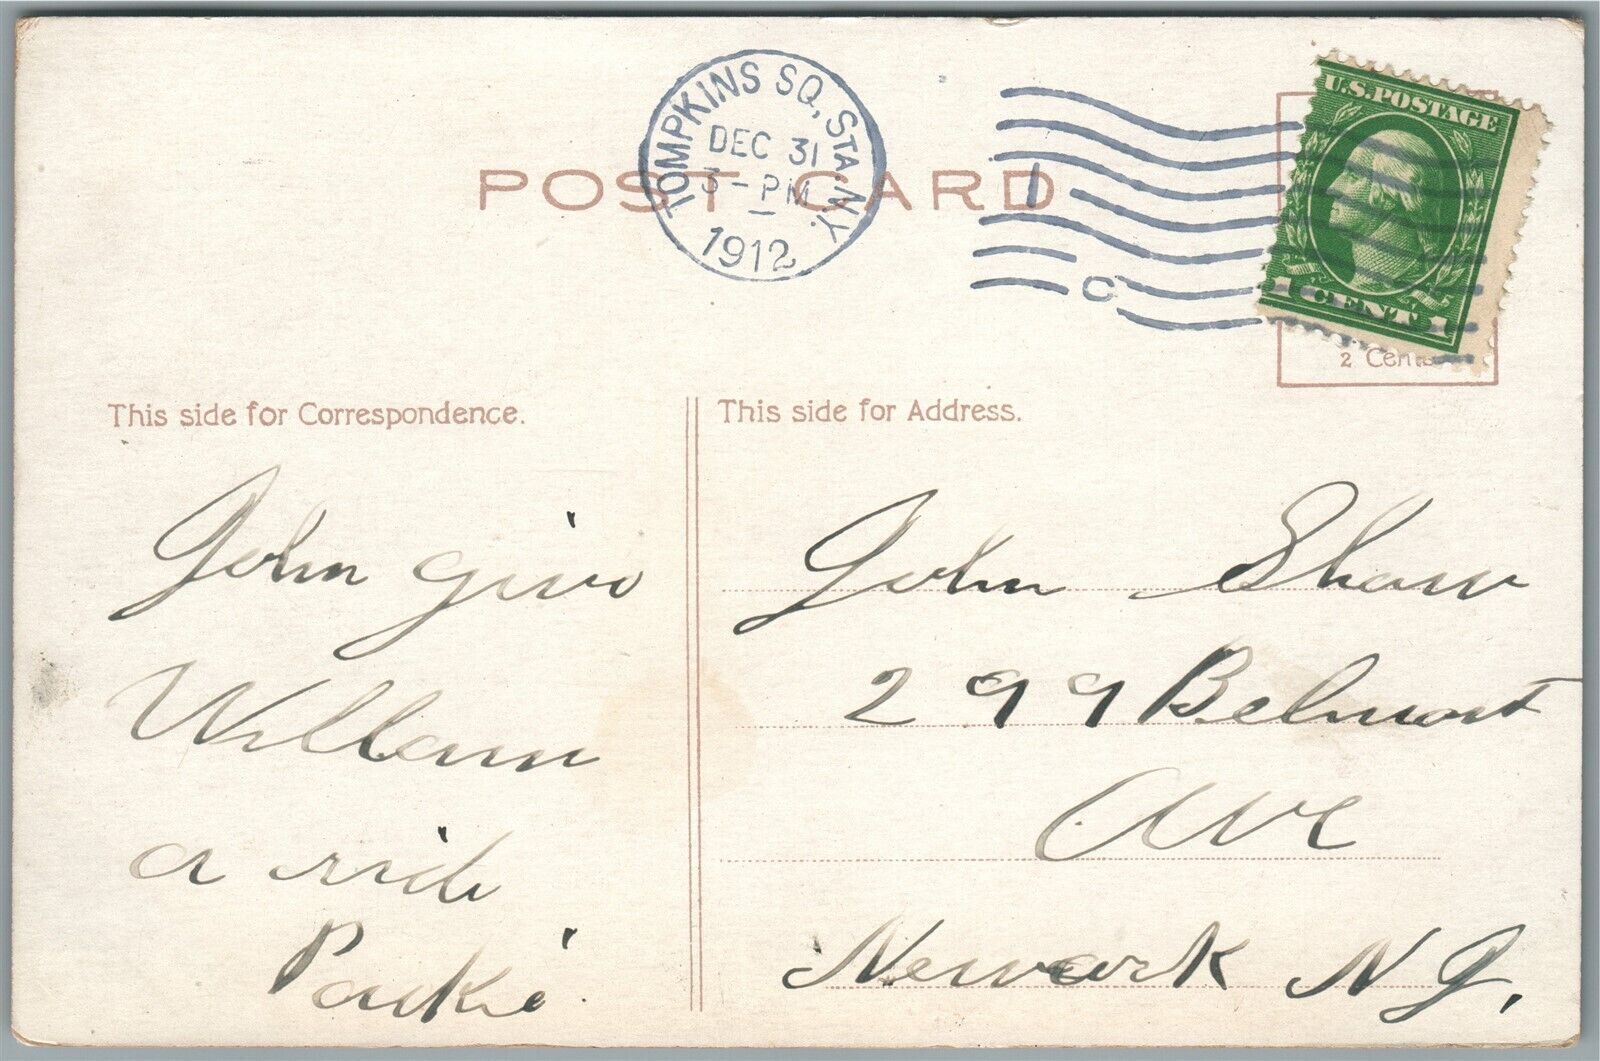 TOMPKINS SQ., STA. N.Y.
DEC 31
3-PM
1912
1
C
U.S. POSTAGE
1 CENT 1
POST CARD
2 Cents
This side for Correspondence.
This side for Address.
John give
Willam
a ride
John Shaw
299 Belmont
Ave
Newark N J.